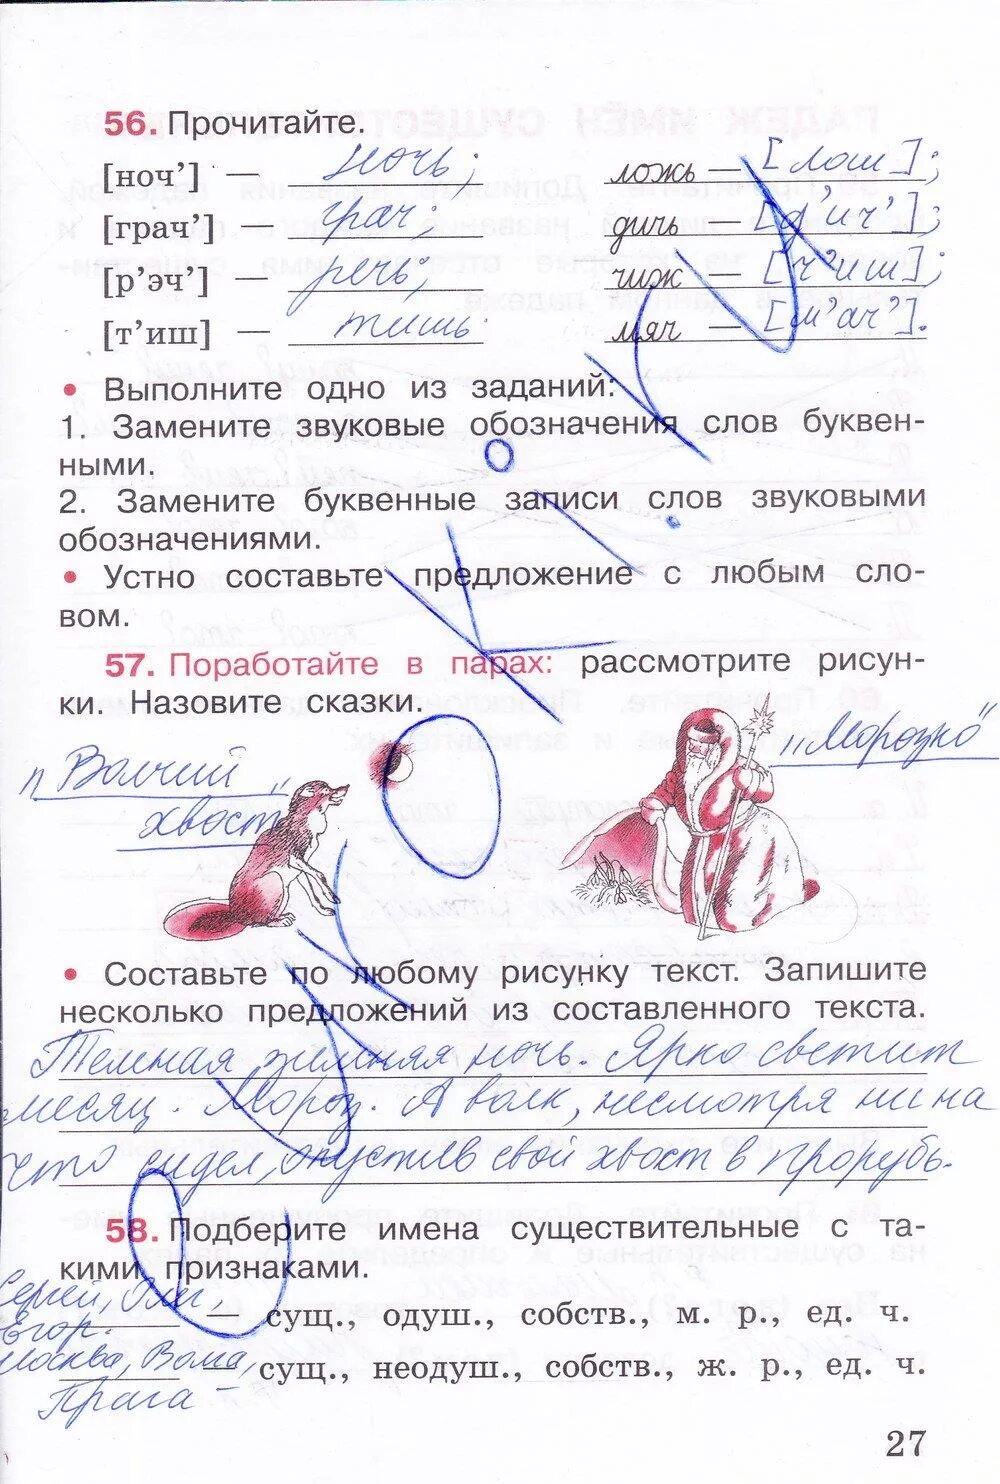 56. Прочитайте.
[ноч'] — ночь; ложь — [лош];
[грач'] — грач; дичь — [д'ич'];
[р'эч'] — речь; чиж — [ч'иш];
[т'иш] — тишь мяч — [м'ач'].
• Выполните одно из заданий:
1. Замените звуковые обозначения слов буквен-
ными.
2. Замените буквенные записи слов звуковыми
обозначениями.
• Устно составьте предложение с любым сло-
вом.
57. Поработайте в парах: рассмотрите рисун-
ки. Назовите сказки.
„Волчий
хвост“
„Морозко“
• Составьте по любому рисунку текст. Запишите
несколько предложений из составленного текста.
Темная зимняя ночь. Ярко светит
месяц. Мороз. А волк, несмотря ни на
что сидел, опустив свой хвост в прорубь.
58. Подберите имена существительные с та-
кими признаками.
Сергей, Олег,
Егор. — сущ., одуш., собств., м. р., ед. ч.
Москва, Волга,
Прага — сущ., неодуш., собств., ж. р., ед. ч.
27